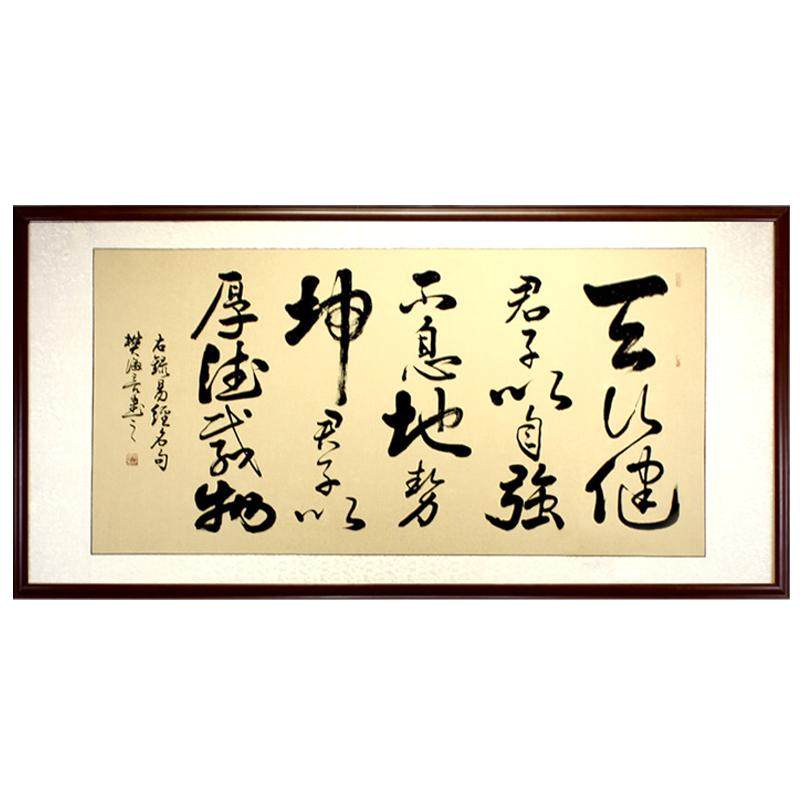 天行健
君子以自強
不息地勢
坤君子以
厚德載物
右錄易經名句
樊海君書之